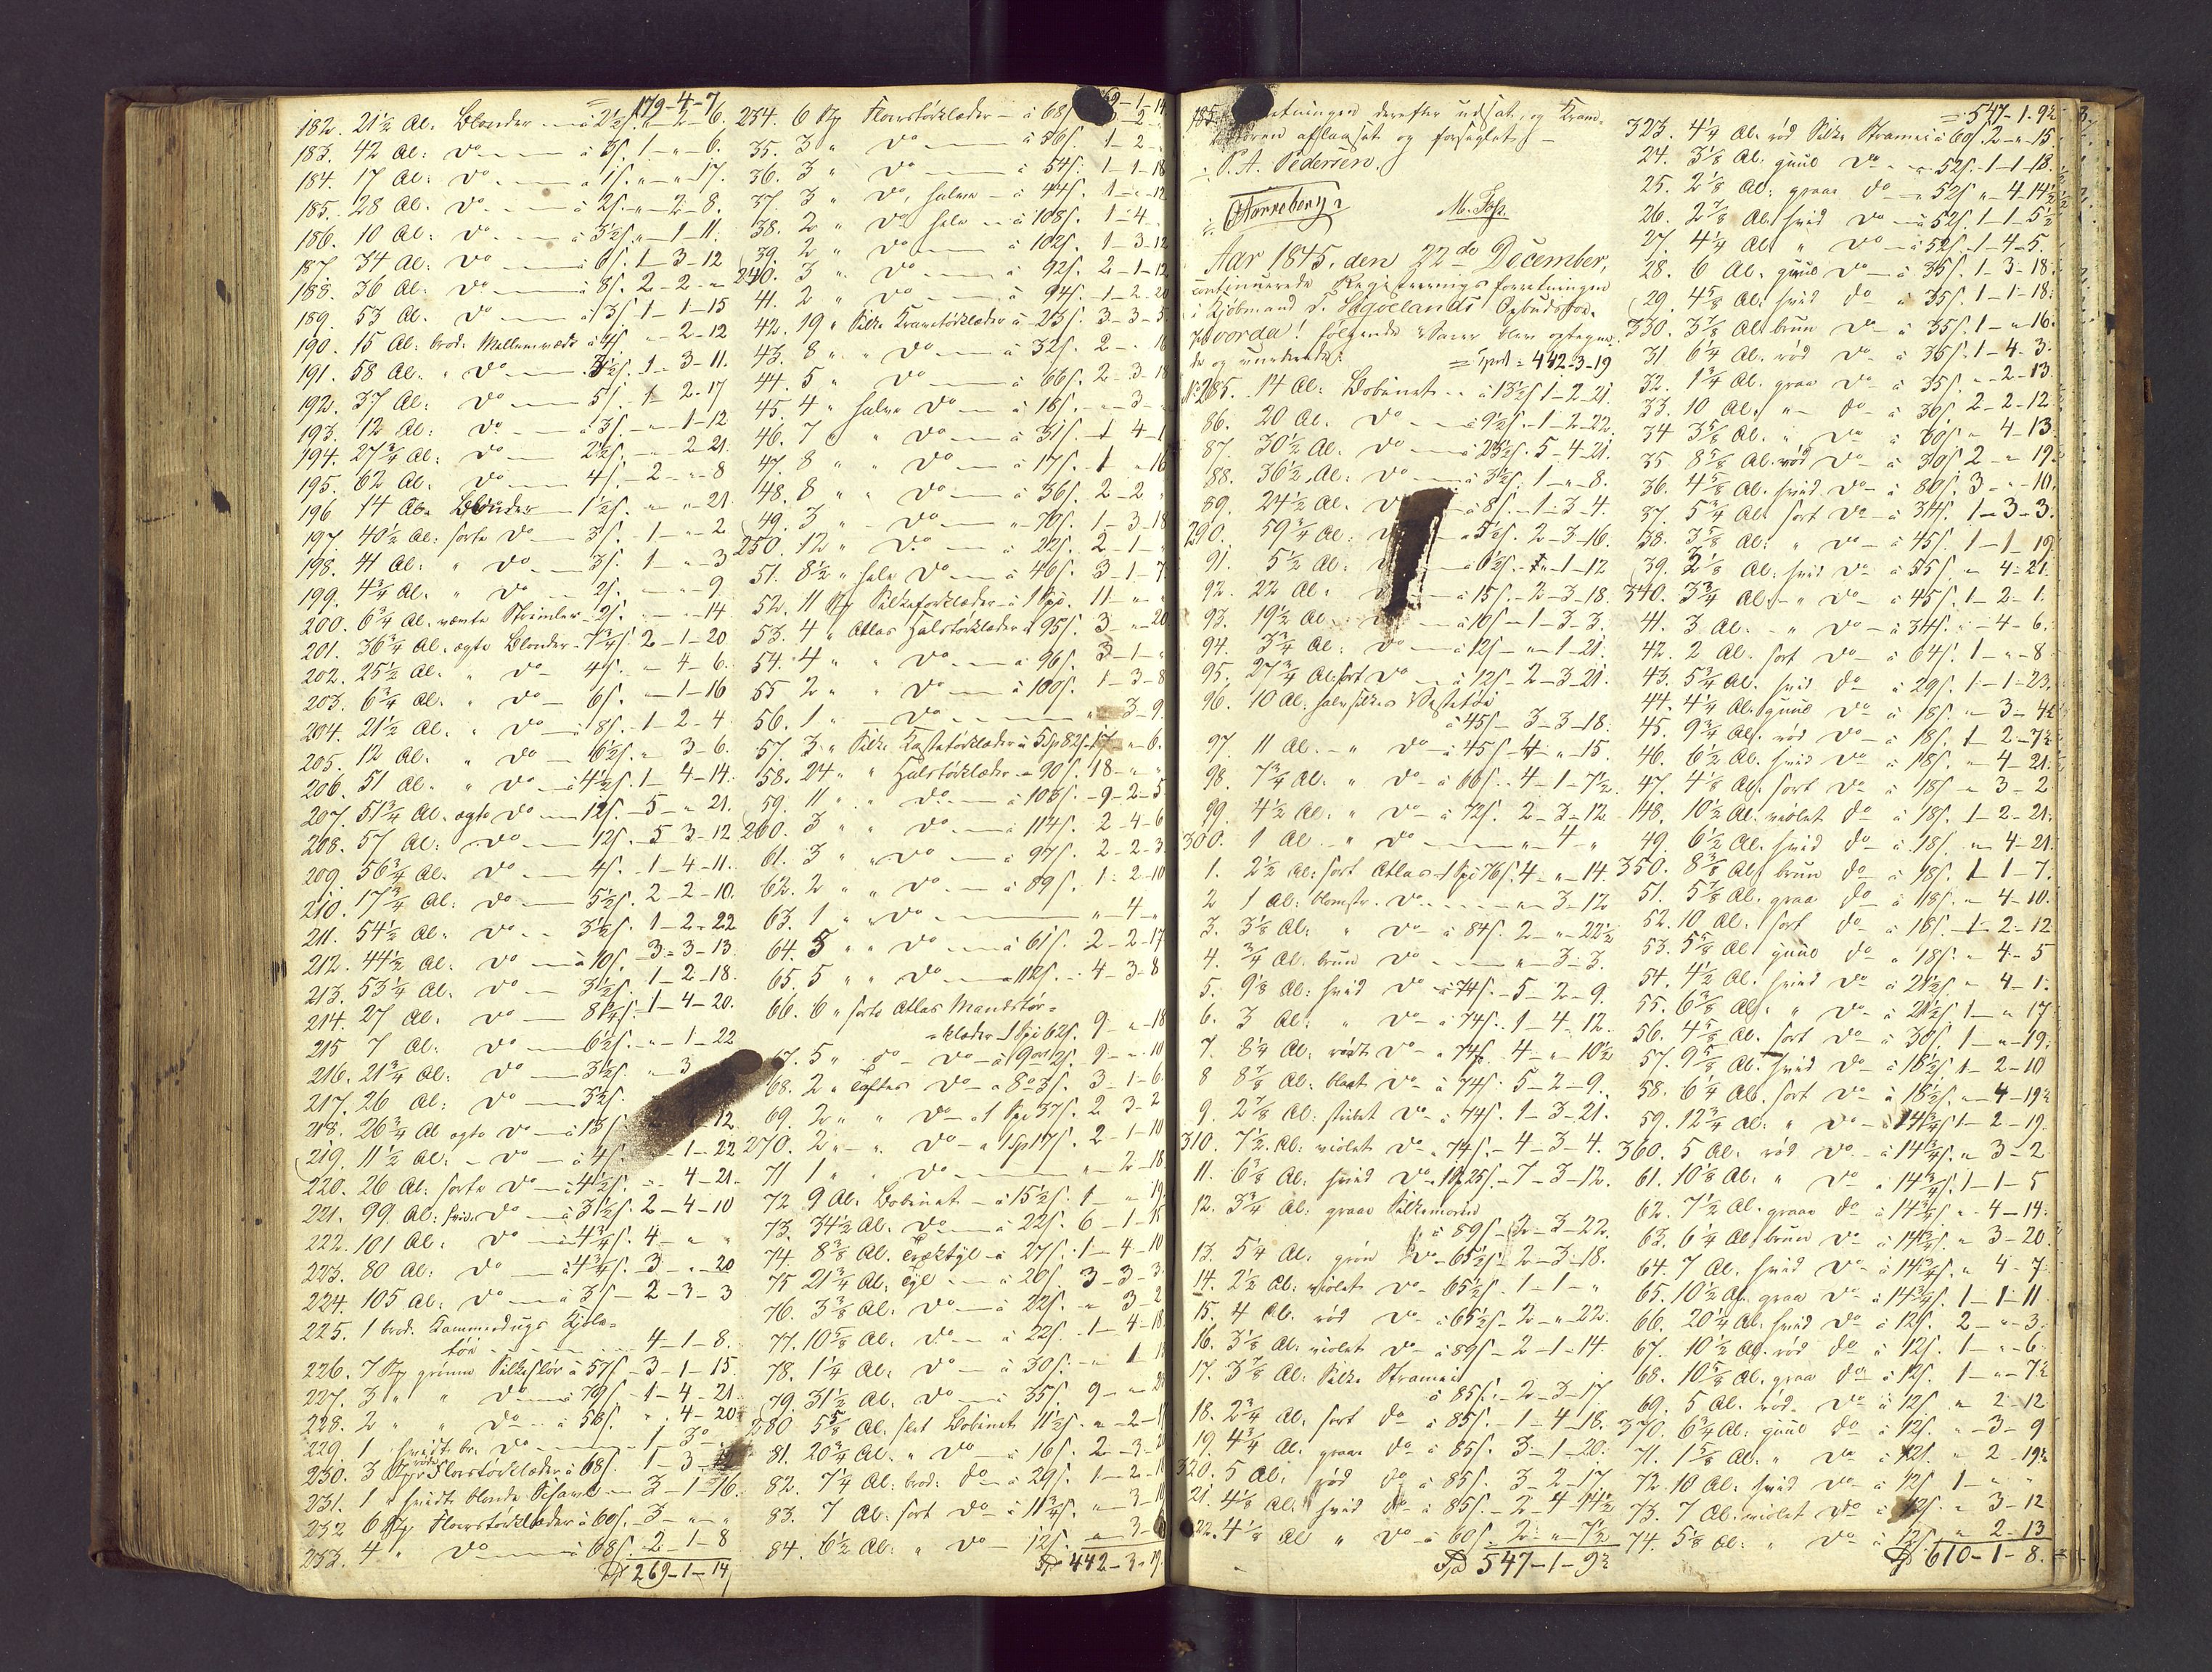 = 179-4-7
182. 21½ Al. Blonder — à 2½ s. „-2-6.
183. 42 Al: Do — à 3 s. 1-„-6.
184. 17 Al: Do — à 1 s. „-„-17.
185. 28 Al. Do — à 2 s. „-2-8.
186. 10 Al: Do — à 3½ s. „-1-11.
187. 34 Al: Do — à 6 s. 1-3-12
188. 36 Al: Do — à 8 s. 2-2-„
189. 53 Al. Do — à 3 s. 1-1-15
190. 15 Al: brod. Mellemværk à 4 s. „-2-12
191. 58 Al. „ Do — 3½ s. 1-3-11.
192. 37 Al: Do — 5 s. 1-2-17
193. 12 Al: Do — à 3 s. „-1-12
194. 27¾ Al: Do — 2½ s. „-2-21
195. 62 Al: Do — 4 s. 2-„-8
196 14 Al. Blonder — 1½ s. „-„-21
197. 40½ Al: sorte Do — 3 s. 1-„-2
198. 41 Al: „ Do — 3 s. 1-„-3
199. 4¾ Al. „ Do — 2 s. „-„-9
200. 6¾ Al. uænte Strimler 2 s. „-„-14
201. 36¾ Al. ægte Blonder 7¾ s. 2-1-20
202. 25½ Al. „ Do — 4 s. „-4-6.
203. 6¾ Al. „ Do — 6 s. „-1-16
204. 21½ Al. „ Do — à 8 s. 1-2-4
205. 12 Al. „ Do — 6½ s. „ 3-6.
206. 51 Al. „ Do — à 4½ s. 1-4-14.
207. 51¾ Al. ægte Do — 12 s. 5-„-21.
208. 57 Al: Do — 12 s. 5-3-12
209. 56¾ Al. Do — 4 s. 1-4-11.
210. 17¾ Al: Do — 5½ s. 2-2-10.
211. 54½ Al. Do — 3½ s. 1-2-22
212. 44½ Al. Do — à 10 s. 3-3-13
213. 53¼ Al. Do — 3½ s. 1-2-18.
214. 27 Al. Do — 8¼ s. 1-4-20.
215 7 Al: Do — 6½ s. „-1-22
216. 21¾ Al: Do — 3½ s. „-3
217. 26 Al: Do — 3½ s.
218. 26¾ Al ægte Do — à 13 s. 12
219. 11½ Al: „ Do — à 4 s. 1-22
220. 26 Al: sorte Do — à 4½ s. 4-21.
221. 99. Al: hvide Do — à 3½ s. 2-4-10
222. 101 Al: Do — à 4¾ s. 4-„-„
223. 80 Al: Do — à 4¾ s. 3-„-20
224. 105 Al: Do — à 3 s. 2-3-3
225. 1 brod. Kammerdugs Kjole-
töi — 4-1-8.
226. 7 St. grönne Silkeslör à 57 s. 3-1-15.
227. 3 „ „ Do — à 79 s. 1-4-21.
228. 2 „ „ Do — à 58 s. „-4-20
229. 1 hvidt br. Do — 1 3
230. 3 St. röde Florstörklæder à 68 s. 1-3-
231. 1 „ hvidt blonde Schavl — 3-1-16.
232 6 St. Florstörklæder à 60 s. 3-„-„
233. 4 „ Do — à 68 s. 2-1-8
Spd 269-1-14
69-1-14
234. 6 St. Florstörklæder — à 68 s. 3-2-
35. 3 „ Do — à 56 s. 1-2-
36. 3 „ Do — à 54 s. 1-1-18
37. 3 „ Do, halve — à 44 s. 1-„-12
38. 2 „ Do hele — à 108 s. 1-4
39. 2 „ Do — à 102 s. 1-3-12
240. 3 „ Do — à 92 s. 2-1-12
41. 2 „ Do — à 94 s. 1-2-20
42. 19 „ Silke Kravetörklæder à 23 s. 3-3-5
43. 8 „ „ Do — à 32 s. 2-„-16
44. 5 „ Do — à 66 s. 2-3-18
45. 4 „ halve Do — à 18 s. „-3-
46. 7 „ „ Do — à 31 s. 1-4-1
47. 8 „ „ Do — à 17 s. 1-„-16
48. 8 „ „ Do — à 36 s. 2-2
49. 3 „ „ Do — „ 70 s. 1-3-18
250. 12 „ Do — à 22 s. 2-1-
51. 8½ „ hele Do — à 46 s. 3-1-7
52. 11 St. Silketörklæder à 1 Spd. 11-„-
53. 4 „ Atlas Halstörklæder à 95 s. 3-„-20
54. 4 „ „ Do — à 96 s. 3-1-
55 2 „ „ Do — à 100 s. 1-3-8
56. 1 „ — Do — „ 3-9.
57. 3 „ Silke Kastetörklæder à 5 Sp 82 s. 17-„-6.
58. 24 „ „ Halstörklæder à 90 s. 18-„-„
59. 11 „ „ Do — à 103 s. 9-2-5
260. 3 „ „ Do — à 114 s. 2-4-6
61. 3 „ „ Do — à 97 s. 2-2-3
62. 2 „ „ Do — à 89 s. 1-2-10
63. 1 „ „ Do — „-4-„
64. 5 „ „ Do — à 61 s. 2-2-17
65. 5 „ „ Do — à 112 s. 4-3-8
66. 6 „ sorte Atlas Mandstör-
klæder 1 Spd 62 s. 9-„-18
67. 5 „ Do — Do — à 9 ort 2 s. 9-„-10
68. 2 „ Taftes Do — à 8 o 3 s. 3-1-6.
69. 2 „ „ Do — à 1 Sp 37 s. 2-3-2
270. 2 „ „ Do — à 1 Sp 17 s. 2-1-10
71 1 „ „ Do — „-2-18
72 9 Al. Bobinet — à 15½ s. 1-„-19
73. 34½ Al. Do — à 22 s. 6-1-15
74. 8⅜ Al. Træktyl à 27 s. 1-4-10
75 21¾ Al. Tyl — à 20 s. 3-3-3
76. 3⅜ Al. Do — à 22 s. „-3-2
77. 10⅝ Al. Do — à 22 s. 1-4-18
78. 1¼ Al. Do — à 30 s. „-1-1
79. 31½ Al. Do — à 35 s. 9-„-2
280 5⅝ Al. slet Bobinet 11½ s. „-2-1
81. 20¾ Al. „ Do — à 16 s. 2-3-
82. 7¼ Al: brod. Do — à 29 s. 1-2-1
83. 7 Al. sort Do — à 11¾ s. „-3-1
84. 6½ Al. „ Do — 12 s. „-3-6
Spd 442-3-19
185.
retningen derefter udsat, og Kram-
boden aflaaset og forseglet
P. A. Pedersen.
Torreberg
M. Foss.
Aar 1845, den 22de December,
continuerede Registreringsforretningen
i Kjöbmand T. Segoelands Opbudsbo.
Hvorda! fölgende Varer blev optegne-
de og vurderede:
= Spd = 442-3-19
No 285. 14 Al: Bobinet — à 13½ s. 1-2-21.
86. 20 Al. Do — à 9½ s. 1-2-22.
87. 30½ Al. Do — à 23½ s. 5-4-21.
88. 36½ Al: Do — à 3½ s. 1-„-8.
89. 24½ Al. D — à 8 s. 1-3-4.
290. 59¾ Al: — à 5½ s. 2-3-16.
91. 5½ Al: — à 6½ s. „-1-12
92. 22 Al. — à 15 s. 2-3-18.
93. 19½ Al. — à 10 s. 1-3-3.
94. 3¾ Al: Do — à 12 s. „-1-21.
95. 27¾ Al: sort Do — à 12 s. 2-3-21.
96. 10 Al: halvsilkes Vestetöi
à 45 s. 3-3-18.
97. 11 Al. „ Do — à 45 s. 4-„-15.
98. 7¾ Al. „ Do — à 66 s. 4-1-7½
99. 4½ Al. „ Do — à 72 s. 2-3-12
300. 1 Al. „ Do — „-4-„
1. 2½ Al: sort Atlas 1 Spd 76 s. 4-„-14.
2 1 Al: blomstr. Do — „-3-12
3. 3⅛ Al: „ Do — à 84 s. 2-„-22½
4. ¾ Al. brun Do — „-3-3.
5. 9⅛ Al: hvid Do — à 74 s. 5-2-9.
6. 3 Al: „ Do — à 74 s. 1-4-12.
7. 8¼ Al: rödt Do — à 74 s. 4-„-10½
8 8⅞ Al: blaat Do — à 74 s. 5-2-9.
9. 2⅞ Al: stribet Do — à 74 s. 1-3-21.
310. 7½ Al: violet Do — 74 s. 4-3-4.
11. 6⅜ Al: hvid Do 1 Sp 25 s. 7-3-12.
12. 3¾ Al: graae Silkemoor
à 89 s. 2-3-22.
13. 5¼ Al. grön Do — 65½ s. 2-3-18.
14. 2½ Al: violet Do — 65½ s. 1-1-„
15. 4 Al. röd Do — à 65½ s. 2-„-22.
16. 3⅛ Al: violet Do — à 89 s. 2-1-14.
17. 3⅞ Al: Silke Stramei
à 85 s. 2-3-17
18. 2¾ Al: sort Do — à 85 s. 1-4-18.
19. 4¾ Al. graae Do — à 85 s. 3-1-20.
320. 5 Al: röd Do à 85 s. 3-2-17
21. 4⅛ Al: hvid Do — à 85 s. 2-4-14½
22. 4⅛ Al „ Do — à 60 s. 2-„-7½
Spd 547-1-9½
= 547-1-9½
323. 4¼ Al. röd Silke Stramei à 60 s. 2-„-15.
24. 3⅛ Al: guul Do — „ 52 s. 1-1-18.
25. 2⅛ Al: graae Do — „ 52 s. „-4-14½
26. 2⅞ Al. hvid Do — à 52 s. 1-1-5½
27. 4¼ Al. „ Do — à 52 s. 1-4-5.
28. 6 Al. guul Do — à 35 s. 1-3-18.
29. 4⅝ Al: hvid Do à 35 s. 1-1-18.
330. 3⅞ Al: brun Do — à 35 s. 1-„-16.
31 6¼ Al. röd Do — à 35 s. 1-4-3.
32. 1¾ Al. graa Do — à 35 s. „-2-13.
33. 10 Al. „ Do — à 30 s. 2-2-12
34 3⅝ Al. „ Do — à 30 s. „-4-13.
35 8⅝ Al. röd Do — à 30 s. 2-„-19.
36. 4⅝ Al. hvid Do — à 80 s. 3-„-10.
37. 5¾ Al. sort Do — à 34 s. 1-3-3.
38. 3⅝ Al: „ Do — à 45 s. 1-1-19
39. 2⅛ Al: hvid Do — à 55 s. „-4-21.
340. 3¾ Al. „ Do — à 45 s. 1-2-1.
41. 3 Al. „ Do — à 34 s. „-4-6.
42. 2 Al. sort Do — à 64 s. 1-„-8
43. 5¾ Al. hvid Do — à 29 s. 1-1-23.
44. 4¼ Al. guul Do — à 18 s. „-3-4½
45. 9¾ Al. röd Do — à 18 s. 1-2-7½
46. 6½ Al. hvid Do — à 18 s. „-4-21.
47. 4⅛ Al. sort Do — à 18 s. „-3-2
348. 10½ Al. violet Do — à 18 s. 1-2-21.
49. 6½ Al. hvid Do — à 18 s. „-4-21.
350. 8⅜ Al. brun Do — à 18 s. 1-1-7.
51. 5⅞ Al. graa Do — à 18 s. „-4-10.
52. 10 Al. sort Do — à 18 s. 1-2-12
53. 5⅝ Al guul Do — à 18 s. „-4-5
54. 4½ Al. hvid Do — à 21½ s. „-4-1.
55. 6⅜ Al. „ Do — à 21½ s. 1-„-17
56. 4⅝ Al. sort Do — à 30 s. 1-„-19.
57. 9⅝ Al. hvid Do — à 18½ s. 1-2-10
58. 6¼ Al. sort Do — à 18½ s. „-4-19½
59. 12¾ Al. „ Do — 14¾ s. 1-2-19.
360. 5 Al. röd Do — à 14¾ s. „-3-2
61. 10⅛ Al. „ Do — 14¾ s. 1-1-5
62. 7½ Al. graae Do — à 14¾ s. „-4-14.
63. 6¼ Al. brun Do — à 14¾ s. „-3-20.
64. 7 Al. hvid Do — à 14¾ s. „-4-7.
65. 10½ Al. graa Do — à 14¾ s. 1-1-11
66. 20¼ Al. hvid Do — à 12 s. 2-„-3.
67. 10½ Al. röd Do à 12 s. 1-„-6.
68. 10⅝ Al. graa Do à 12 s. 1-„-7½
69. 5 Al. röd Do — à 12 s. „-2-12
370. 6¾ Al: guul Do à 12 s. „-3-9
71. 1⅝ Al: „ Do à 42 s. „-2-19½
72. 10 Al: hvid Do — à 12 s. 1-„-„
73. 7 Al. violet Do — à 12 s. „-3-12
74. 5⅛ Al: „ Do — à 12 s. „-2-13
Spd 610-1-8.